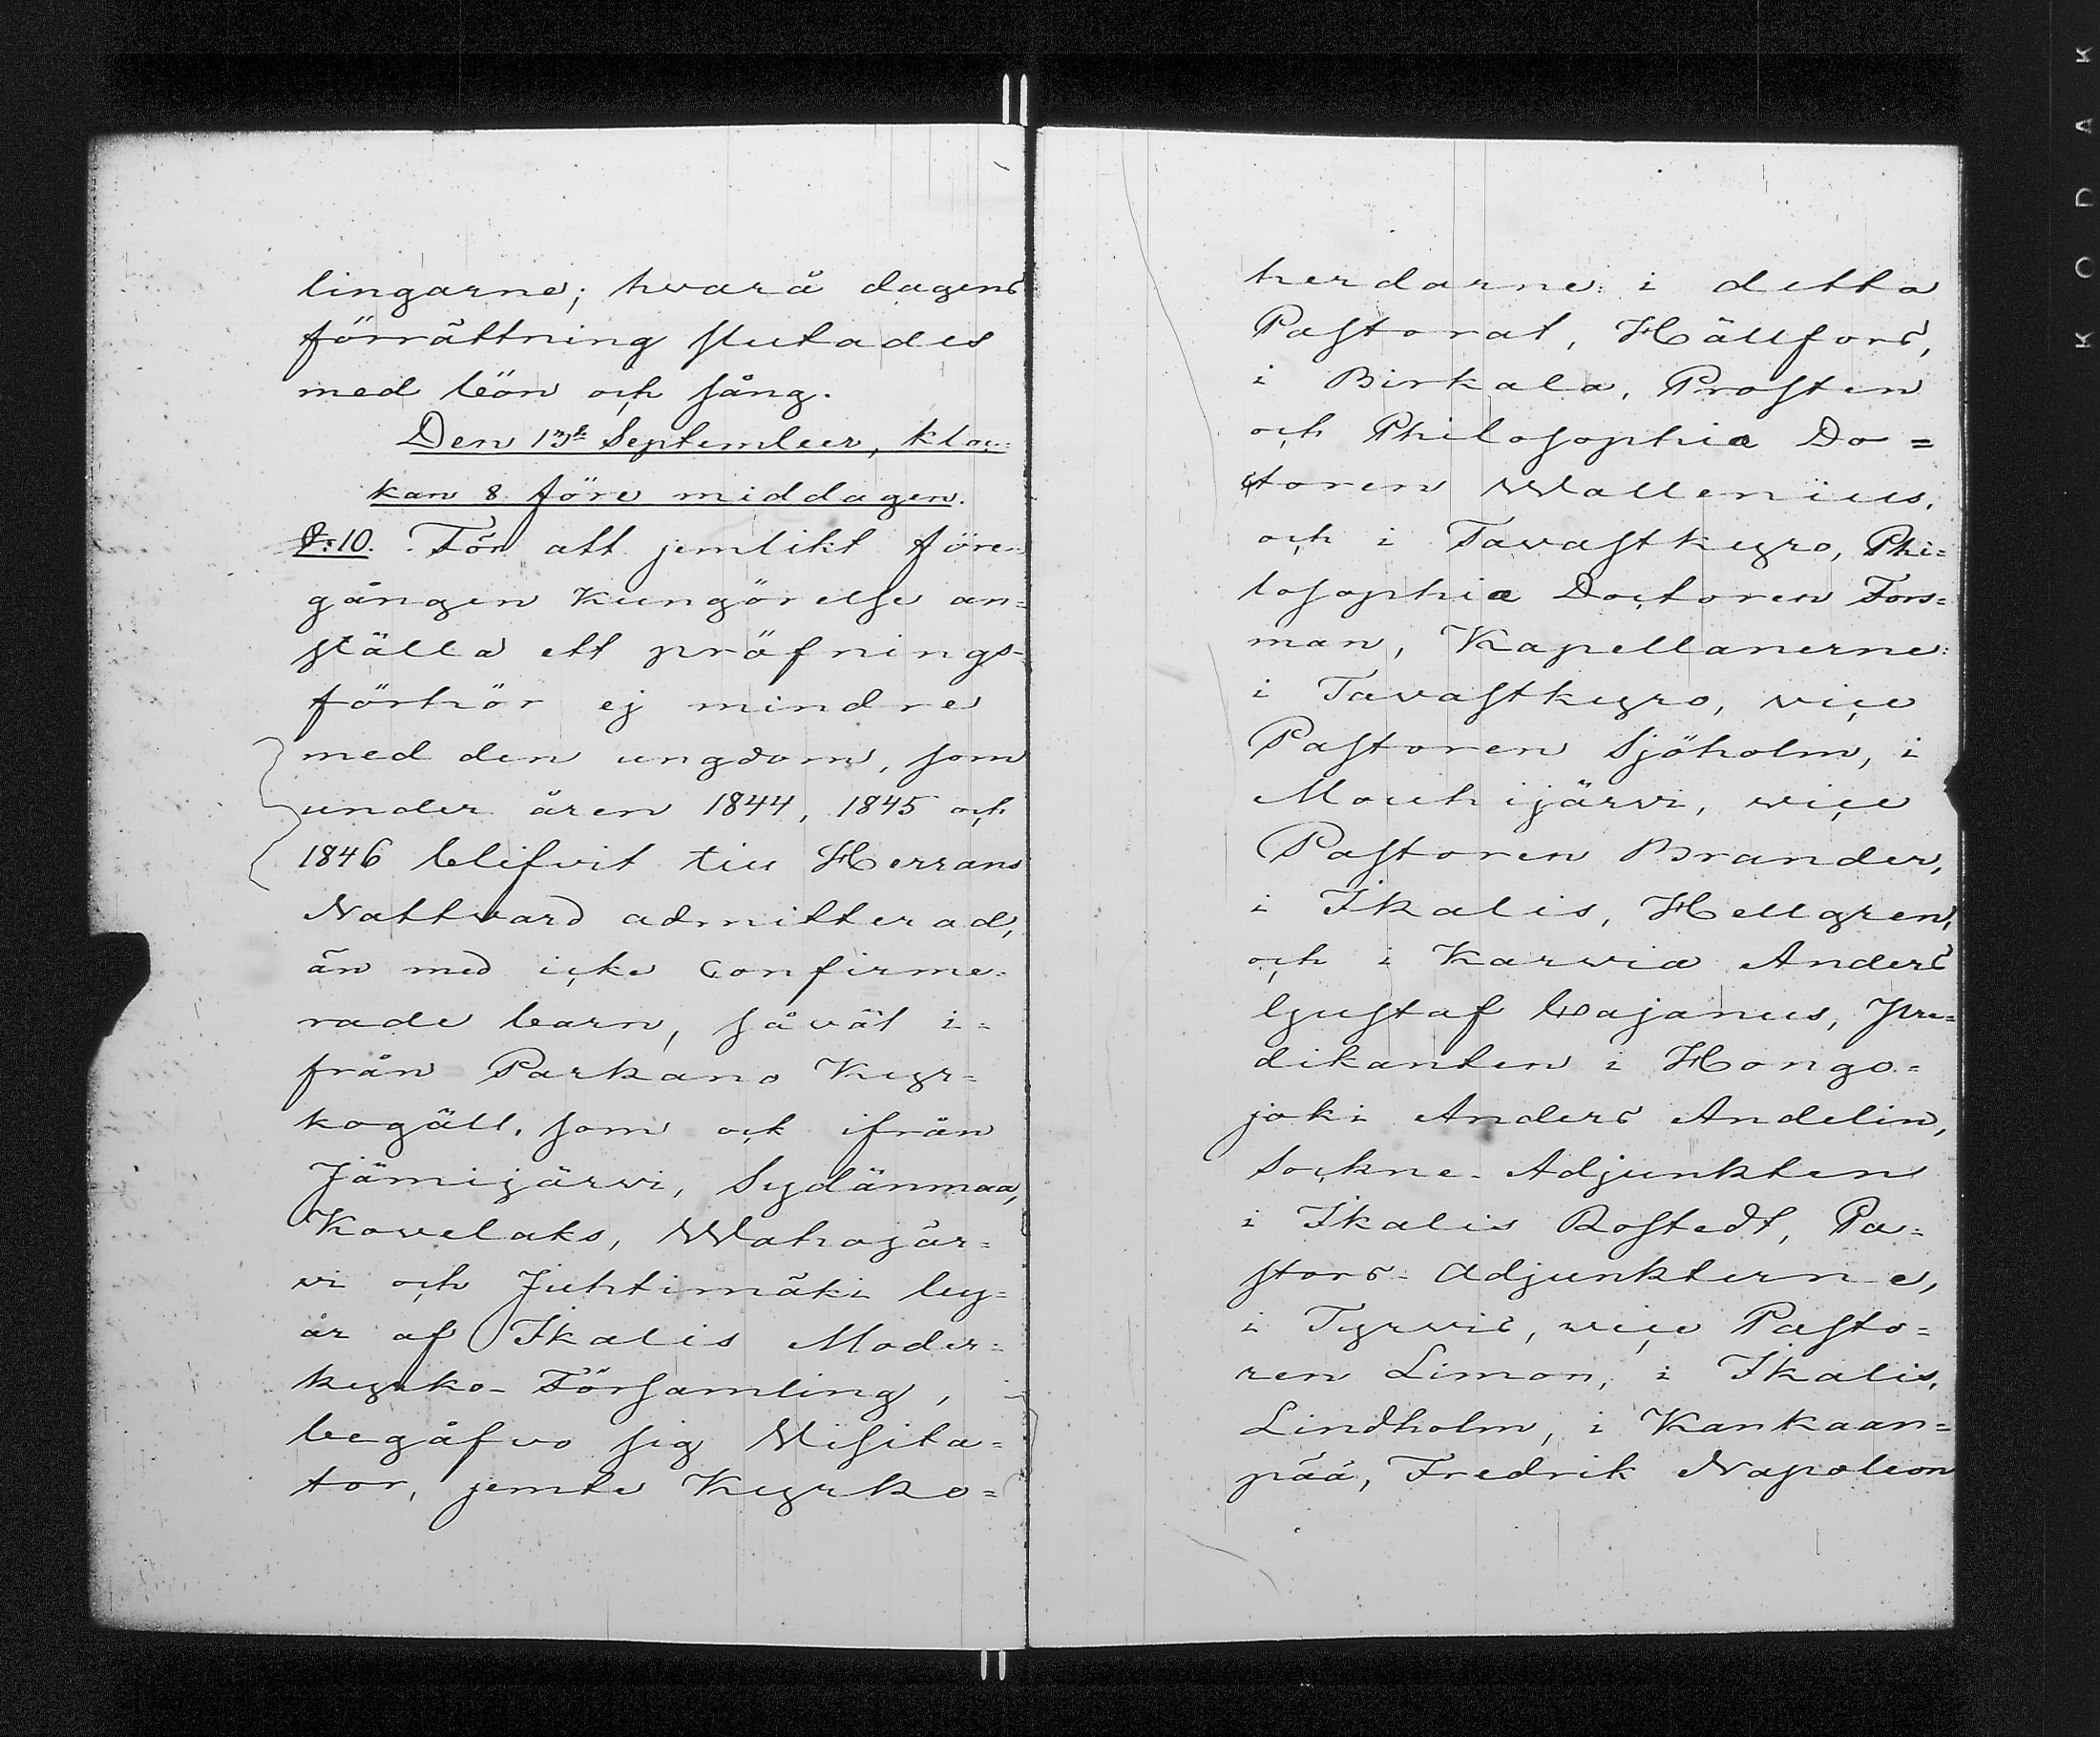 lingarne; hvarå dagens
förrättning slutades
med bön och sång.
Den 13de September, kloc-
kan 8 före middagen.
§:10. För att jemlikt före-
gången Kungörelse an-
ställa ett pröfnings-
förhör ej mindre
med den ungdom, som
under åren 1844, 1845 och
1846 blifvit till Herrans
Nattvard admitterad,
än med icke Confirme-
rade barn, såväl i-
från Parkano Kyr-
kogäll, som ock ifrån
Jämijärvi, Sydänmaa,
Kovelaks, Wahojär-
vi och Juhtimäki by-
ar af Ikalis Moder-
kyrko-Församling,
begåfvo sig Visita-
tor, jemte Kyrko-
herdarne: i detta
Pastorat, Hällfors,
i Birkala, Prosten
och Philosophiæ Do-
ctoren Wallenius,
och i Tavastkyro, Phi-
losophiæ Doctoren Fors-
man, Kapellanerne:
i Tavastkyro, vice
Pastoren Sjöholm, i
Mouhijärvi, vice
Pastoren Brander,
i Ikalis, Hellgren,
och i Karvia Anders
Gustaf Cajanus, Pre-
dikanten i Hongo-
joki Anders Andelin,
Sockne-Adjunkten
i Ikalis Bostedt, Pa-
stors-Adjunkterne,
i Tyrvis, vice Pasto-
ren Limon, i Ikalis,
Lindholm, i Kankaan-
pää, Fredrik Napoleon
KODAK